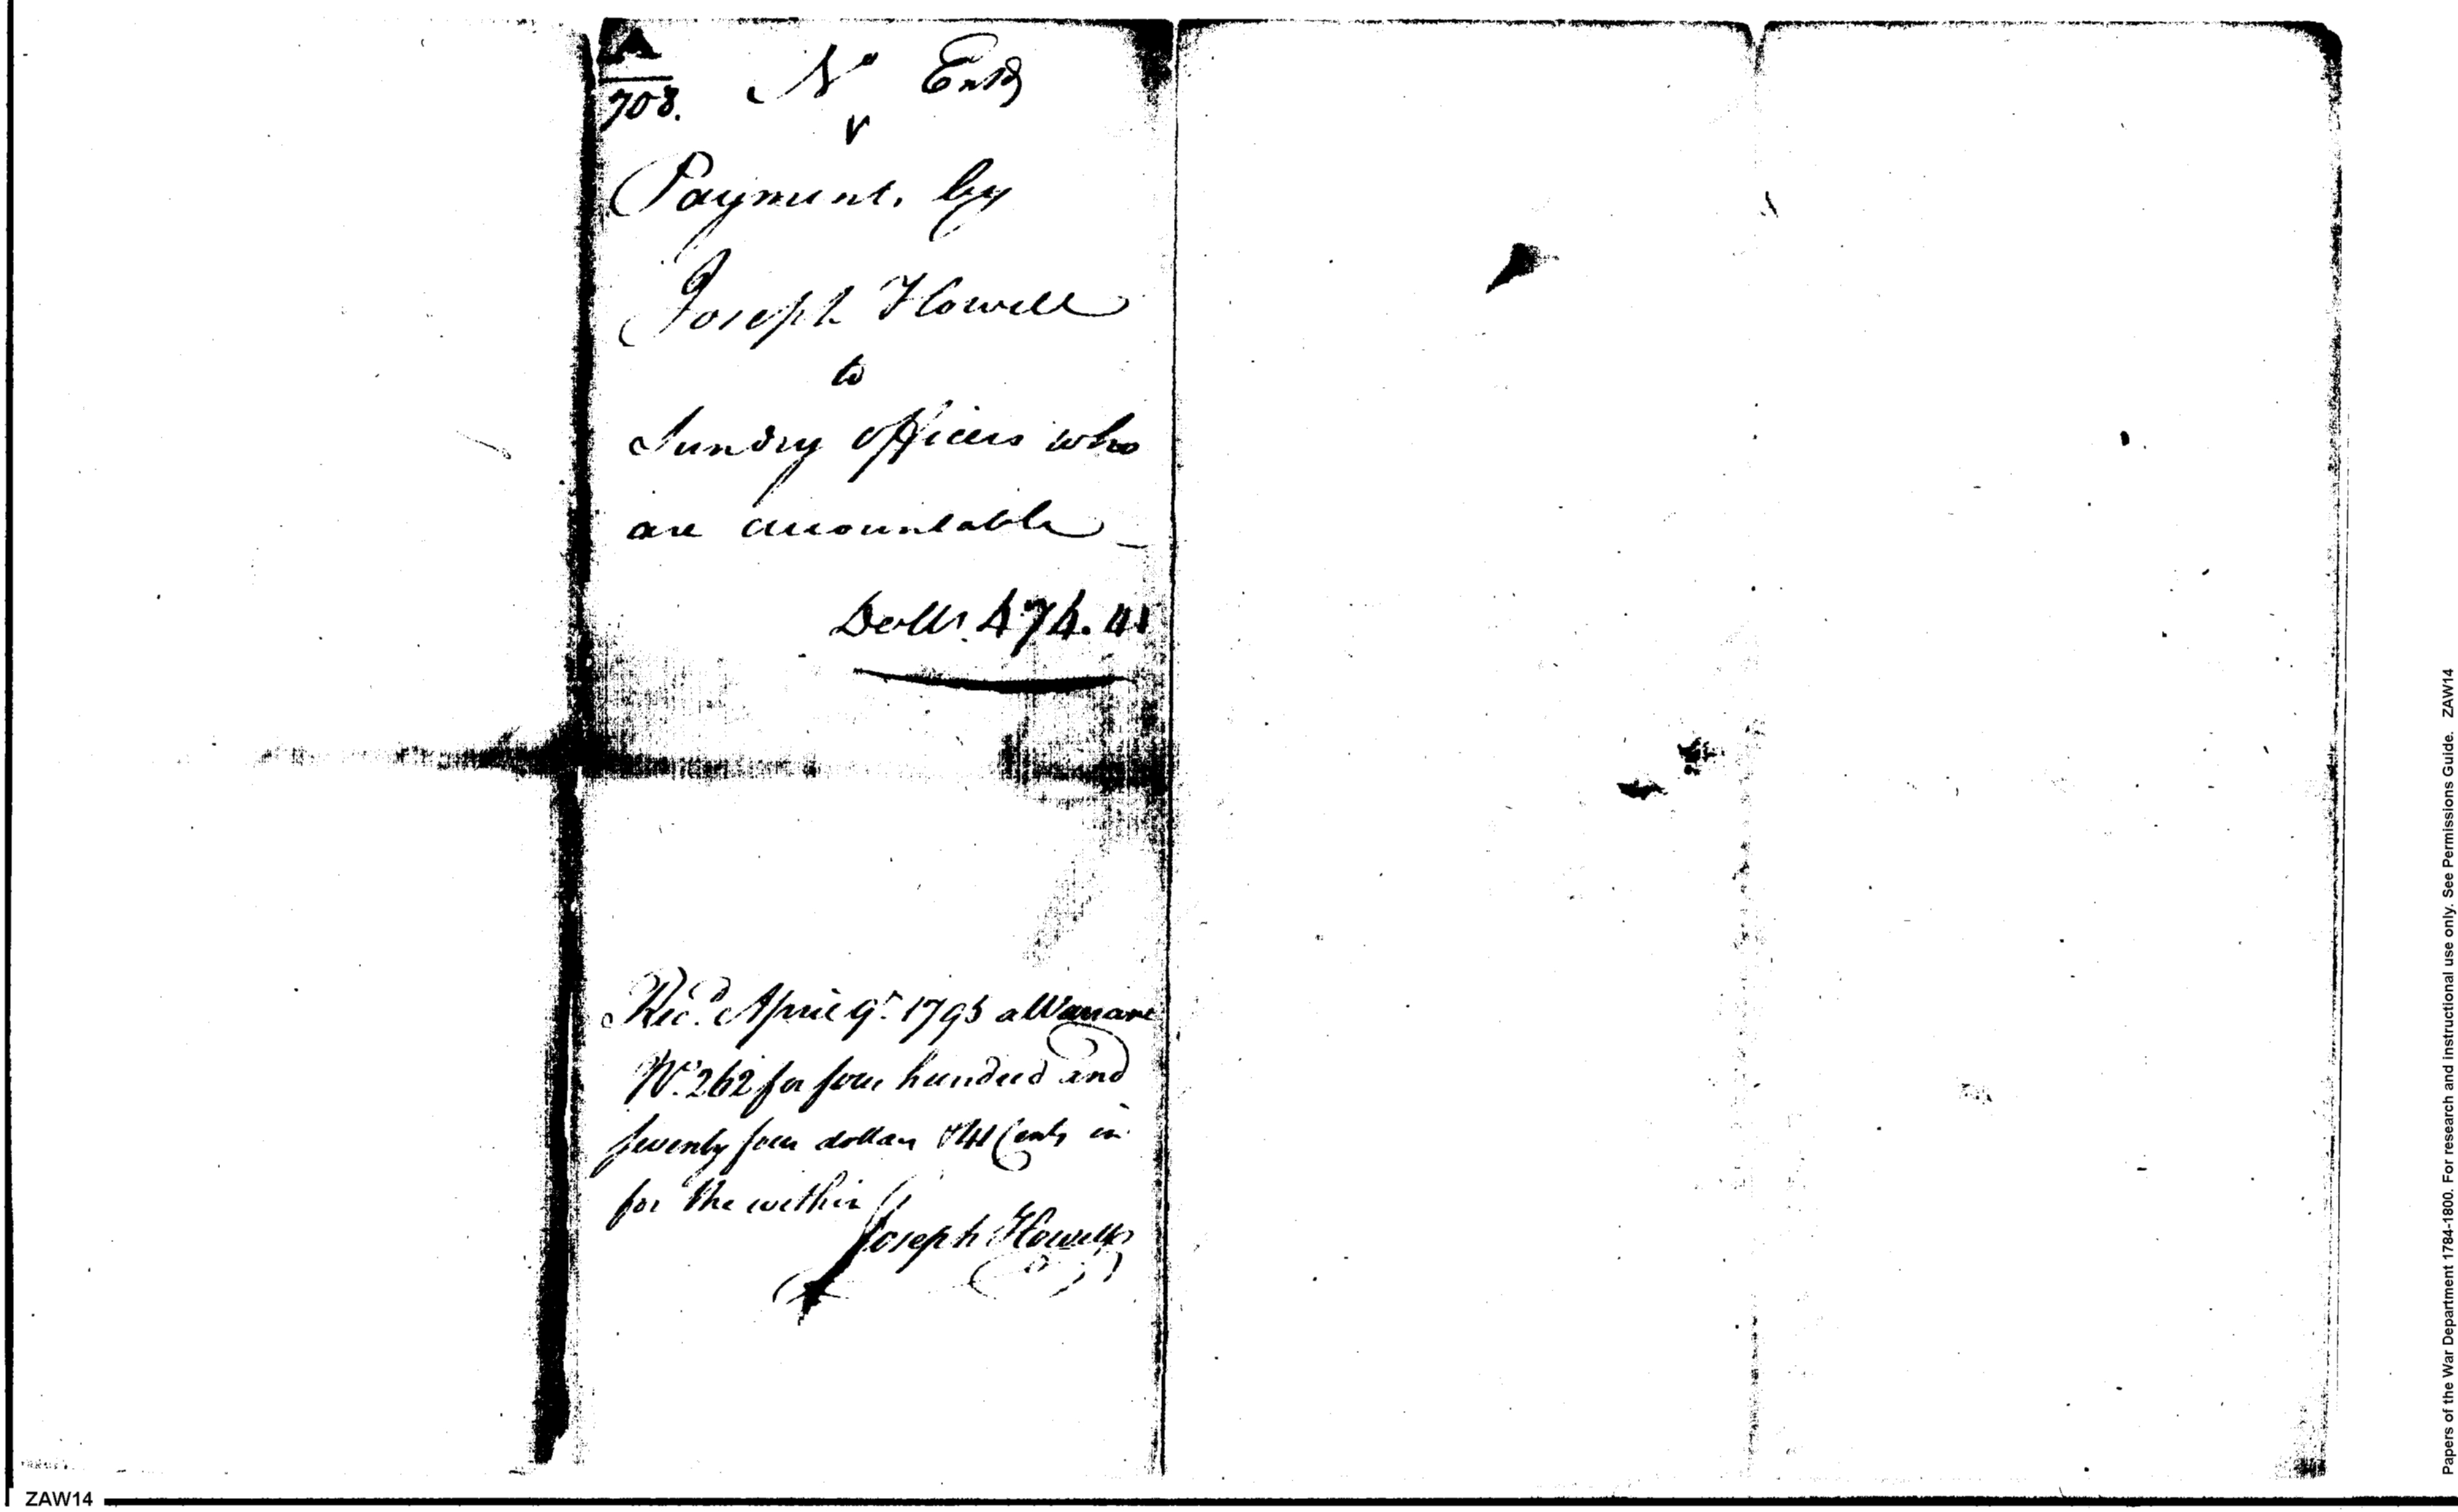 A
708.
No Entd
Payment, by
Joseph Howell
to
Sundry officers who
are accountable
Dolls. 474. 41
Recd. April 9th 1795 a Warrant
No. 262 for four hundred and
seventy four dollars & 41 Cents in
for the within
Joseph Howell
ZAW14
Papers of the War Department 1784-1800. For research and instructional use only. See Permissions Guide. ZAW14